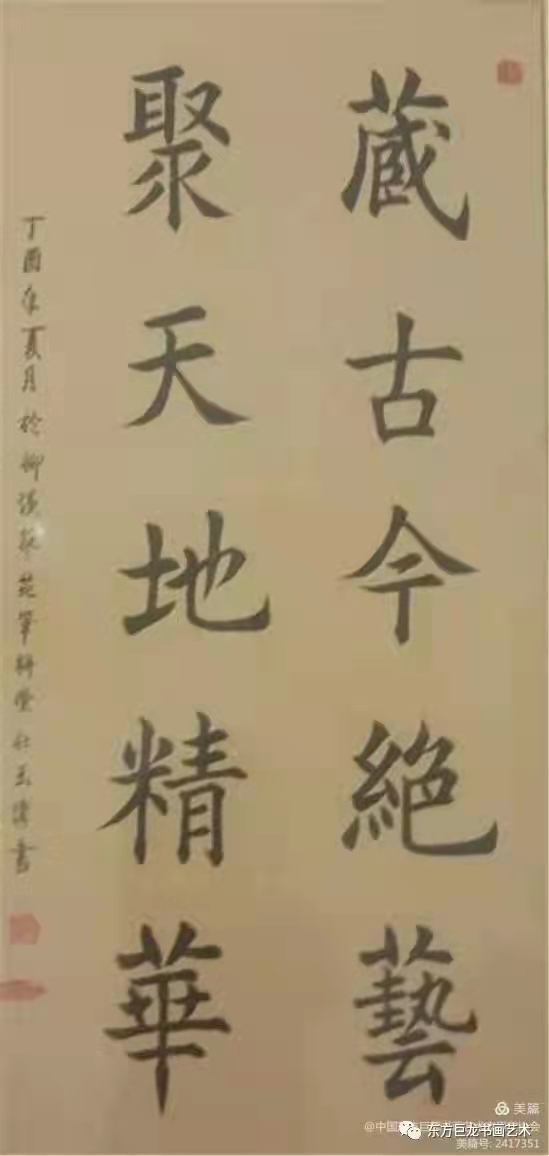 藏古今絕藝
聚天地精華
丁酉年夏月於柳溪艺苑筆耕堂杜玉
書
美篇
@中国
东方巨龙书画艺术
美篇号: 2417351